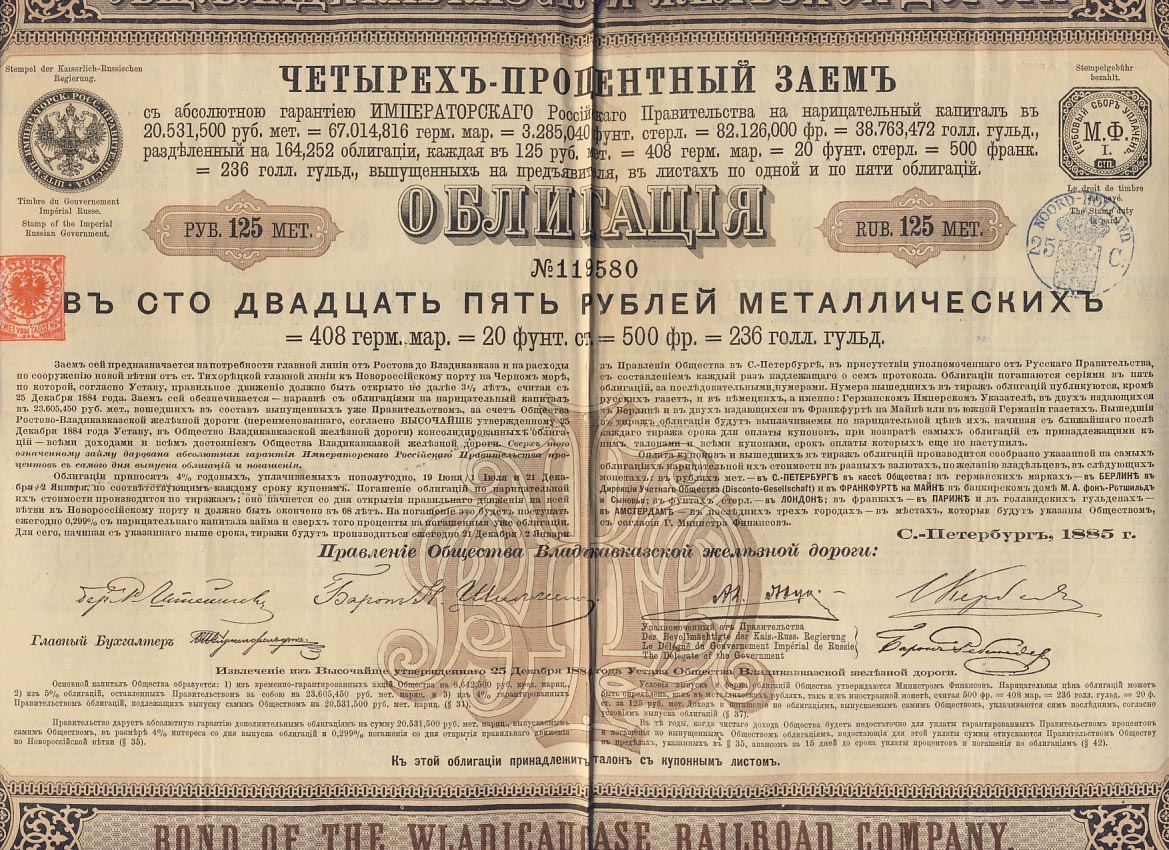 ЧЕТЫРЕХЪ-ПРОЦЕНТНЫЙ ЗАЕМЪ
Stempel der Kaiserlich-Russischen
Regierung.
Stempelgebühr
bezahlt.
съ абсолютною гарантіею ИМПЕРАТОРСКАГО Россійскаго Правительства на нарицательный капиталъ въ
20.531,500 руб. мет. = 67.014,816 герм. мар. = 3.285,040 фунт. стерл. = 82.126,000 фр. = 38.763,472 голл. гульд.,
раздѣленный на 164,252 облигаціи, каждая въ 125 руб. мет. = 408 герм. мар. = 20 фунт. стерл. = 500 франк.
= 236 голл. гульд., выпущенныхъ на предъявителя, въ листахъ по одной и по пяти облигацій.
ГЕРБОВЫЙ СБОРЪ УПЛАЧЕНЪ
М.Ф.
I.
СТП.
Timbre du Gouvernement
Impérial Russe.
Stamp of the Imperial
Russian Government.
Le droit de timbre
payé.
The Stamp duty
paid.
ОБЛИГАЦІЯ
РУБ. 125 МЕТ.
RUB. 125 MET.
NOORD-HOLLAND
25 C.
№119580
ВЪ СТО ДВАДЦАТЬ ПЯТЬ РУБЛЕЙ МЕТАЛЛИЧЕСКИХЪ
= 408 герм. мар. = 20 фунт. ст. = 500 фр. = 236 голл. гульд.
Заемъ сей предназначается на потребности главной линіи отъ Ростова до Владикавказа и на расходы
по сооруженію новой вѣтви отъ ст. Тихорѣцкой главной линіи къ Новороссійскому порту на Черномъ морѣ,
по которой, согласно Уставу, правильное движеніе должно быть открыто не далѣе 3½ лѣтъ, считая съ
25 Декабря 1884 года. Заемъ сей обезпечивается — наравнѣ съ облигаціями на нарицательный капиталъ
въ 23.605,450 руб. мет., вошедшихъ въ составъ выпущенныхъ уже Правительствомъ, за счетъ Общества
Ростово-Владикавказской желѣзной дороги (переименованнаго, согласно ВЫСОЧАЙШЕ утвержденному 25
Декабря 1884 года Уставу, въ Общество Владикавказской желѣзной дороги) консолидированныхъ облига-
цій — всѣми доходами и всѣмъ достояніемъ Общества Владикавказской желѣзной дороги. Сверхъ того
означенному займу дарована абсолютная гарантія Императорскаго Россійскаго Правительства про-
центовъ съ самого дня выпуска облигацій и погашенія.
Облигаціи приносятъ 4% годовыхъ, уплачиваемыхъ полугодно, 19 Іюня / 1 Іюля и 21 Дека-
бря / 2 Января, по соотвѣтствующимъ каждому сроку купонамъ. Погашеніе облигацій по нарицательной
ихъ стоимости производится по тиражамъ; оно начнется со дня открытія правильнаго движенія на всей
вѣтви къ Новороссійскому порту и должно быть окончено въ 68 лѣтъ. На погашеніе это будетъ поступать
ежегодно 0,299% съ нарицательнаго капитала займа и сверхъ того проценты на погашенныя уже облигаціи.
Для сего, начиная съ указаннаго выше срока, тиражи будутъ производиться ежегодно 21 Декабря / 2 Января
въ Правленіи Общества въ С.-Петербургѣ, въ присутствіи уполномоченнаго отъ Русскаго Правительства,
съ составленіемъ каждый разъ надлежащаго о семъ протокола. Облигаціи погашаются серіями въ пять
облигацій, за послѣдовательными нумерами. Нумера вышедшихъ въ тиражъ облигацій публикуются, кромѣ
русскихъ газетъ, и въ нѣмецкихъ, а именно: Германскомъ Имперскомъ Указателѣ, въ двухъ издающихся
въ Берлинѣ и въ двухъ издающихся въ Франкфуртѣ на Майнѣ или въ южной Германіи газетахъ. Вышедшія
въ тиражъ облигаціи будутъ выплачиваемы по нарицательной цѣнѣ ихъ, начиная съ ближайшаго послѣ
каждаго тиража срока для оплаты купоновъ, при возвратѣ самыхъ облигацій съ принадлежащими къ
нимъ талонами и всѣми купонами, срокъ оплаты которыхъ еще не наступилъ.
Оплата купоновъ и вышедшихъ въ тиражъ облигацій производится сообразно указанной на самыхъ
облигаціяхъ нарицательной ихъ стоимости въ разныхъ валютахъ, по желанію владѣльцевъ, въ слѣдующихъ
монетахъ: въ рубляхъ мет. — въ С.-ПЕТЕРБУРГѢ въ кассѣ Общества; въ германскихъ маркахъ — въ БЕРЛИНѢ въ
Дирекціи Учетнаго Общества (Disconto-Gesellschaft) и въ ФРАНКФУРТѢ на МАЙНѢ въ банкирскомъ домѣ М. А. фонъ-Ротшильдъ
и Сыновья; въ фунтахъ стерл. — въ ЛОНДОНѢ; въ франкахъ — въ ПАРИЖѢ и въ голландскихъ гульденахъ —
въ АМСТЕРДАМѢ — въ послѣднихъ трехъ городахъ — въ мѣстахъ, которыя будутъ указаны Обществомъ,
съ согласія Г. Министра Финансовъ.
С.-Петербургъ, 1885 г.
Правленіе Общества Владикавказской желѣзной дороги:
Баронъ
Главный Бухгалтеръ
Уполномоченный отъ Правительства
Der Bevollmächtigte der Kais.-Russ. Regierung
Le Délégué du Gouvernement Impérial de Russie
The Delegate of the Government
Извлеченіе изъ Высочайше утвержденнаго 25 Декабря 1884 года Устава Общества Владикавказской желѣзной дороги.
Основной капиталъ Общества образуется: 1) изъ временно-гарантированныхъ акцій Общества на 8,642,500 руб. кред. нариц.
2) изъ 5% облигацій, оставленныхъ Правительствомъ за собою на 23,605,450 руб. мет. нариц. и 3) изъ 4% гарантированныхъ
Правительствомъ облигацій, подлежащихъ выпуску самимъ Обществомъ на 20.531,500 руб. мет. нариц. (§ 31).
Правительство даруетъ абсолютную гарантію дополнительнымъ облигаціямъ на сумму 20.531,500 руб. мет. нариц., выпускаемымъ
самимъ Обществомъ, въ размѣрѣ 4% интереса со дня выпуска облигацій и 0,299% погашенія со дня открытія правильнаго движенія
по Новороссійской вѣтви (§ 35).
Условія выпуска сихъ облигацій Общества утверждаются Министромъ Финансовъ. Нарицательная цѣна облигацій можетъ
быть опредѣлена, какъ въ металлическихъ рубляхъ, такъ и въ иностранной монетѣ, считая 500 фр. = 408 мар. = 236 голл. гульд. = 20 ф.
ст. за 125 руб. мет. Доходъ и погашеніе по облигаціямъ, выпускаемымъ самимъ Обществомъ, уплачиваются симъ послѣднимъ, согласно
условіямъ выпуска облигацій (§ 37).
Въ тѣ годы, когда чистаго дохода Общества будетъ недостаточно для уплаты гарантированныхъ Правительствомъ процентовъ
и погашенія по выпущеннымъ Обществомъ облигаціямъ, недостающія для этой уплаты суммы отпускаются Правительствомъ Обществу
въ предѣлахъ, указанныхъ въ § 35, авансомъ за 15 дней до срока уплаты процентовъ и погашенія по облигаціямъ (§ 42).
Къ этой облигаціи принадлежитъ талонъ съ купоннымъ листомъ.
BOND OF THE WLADICAUCASE RAILROAD COMPANY.